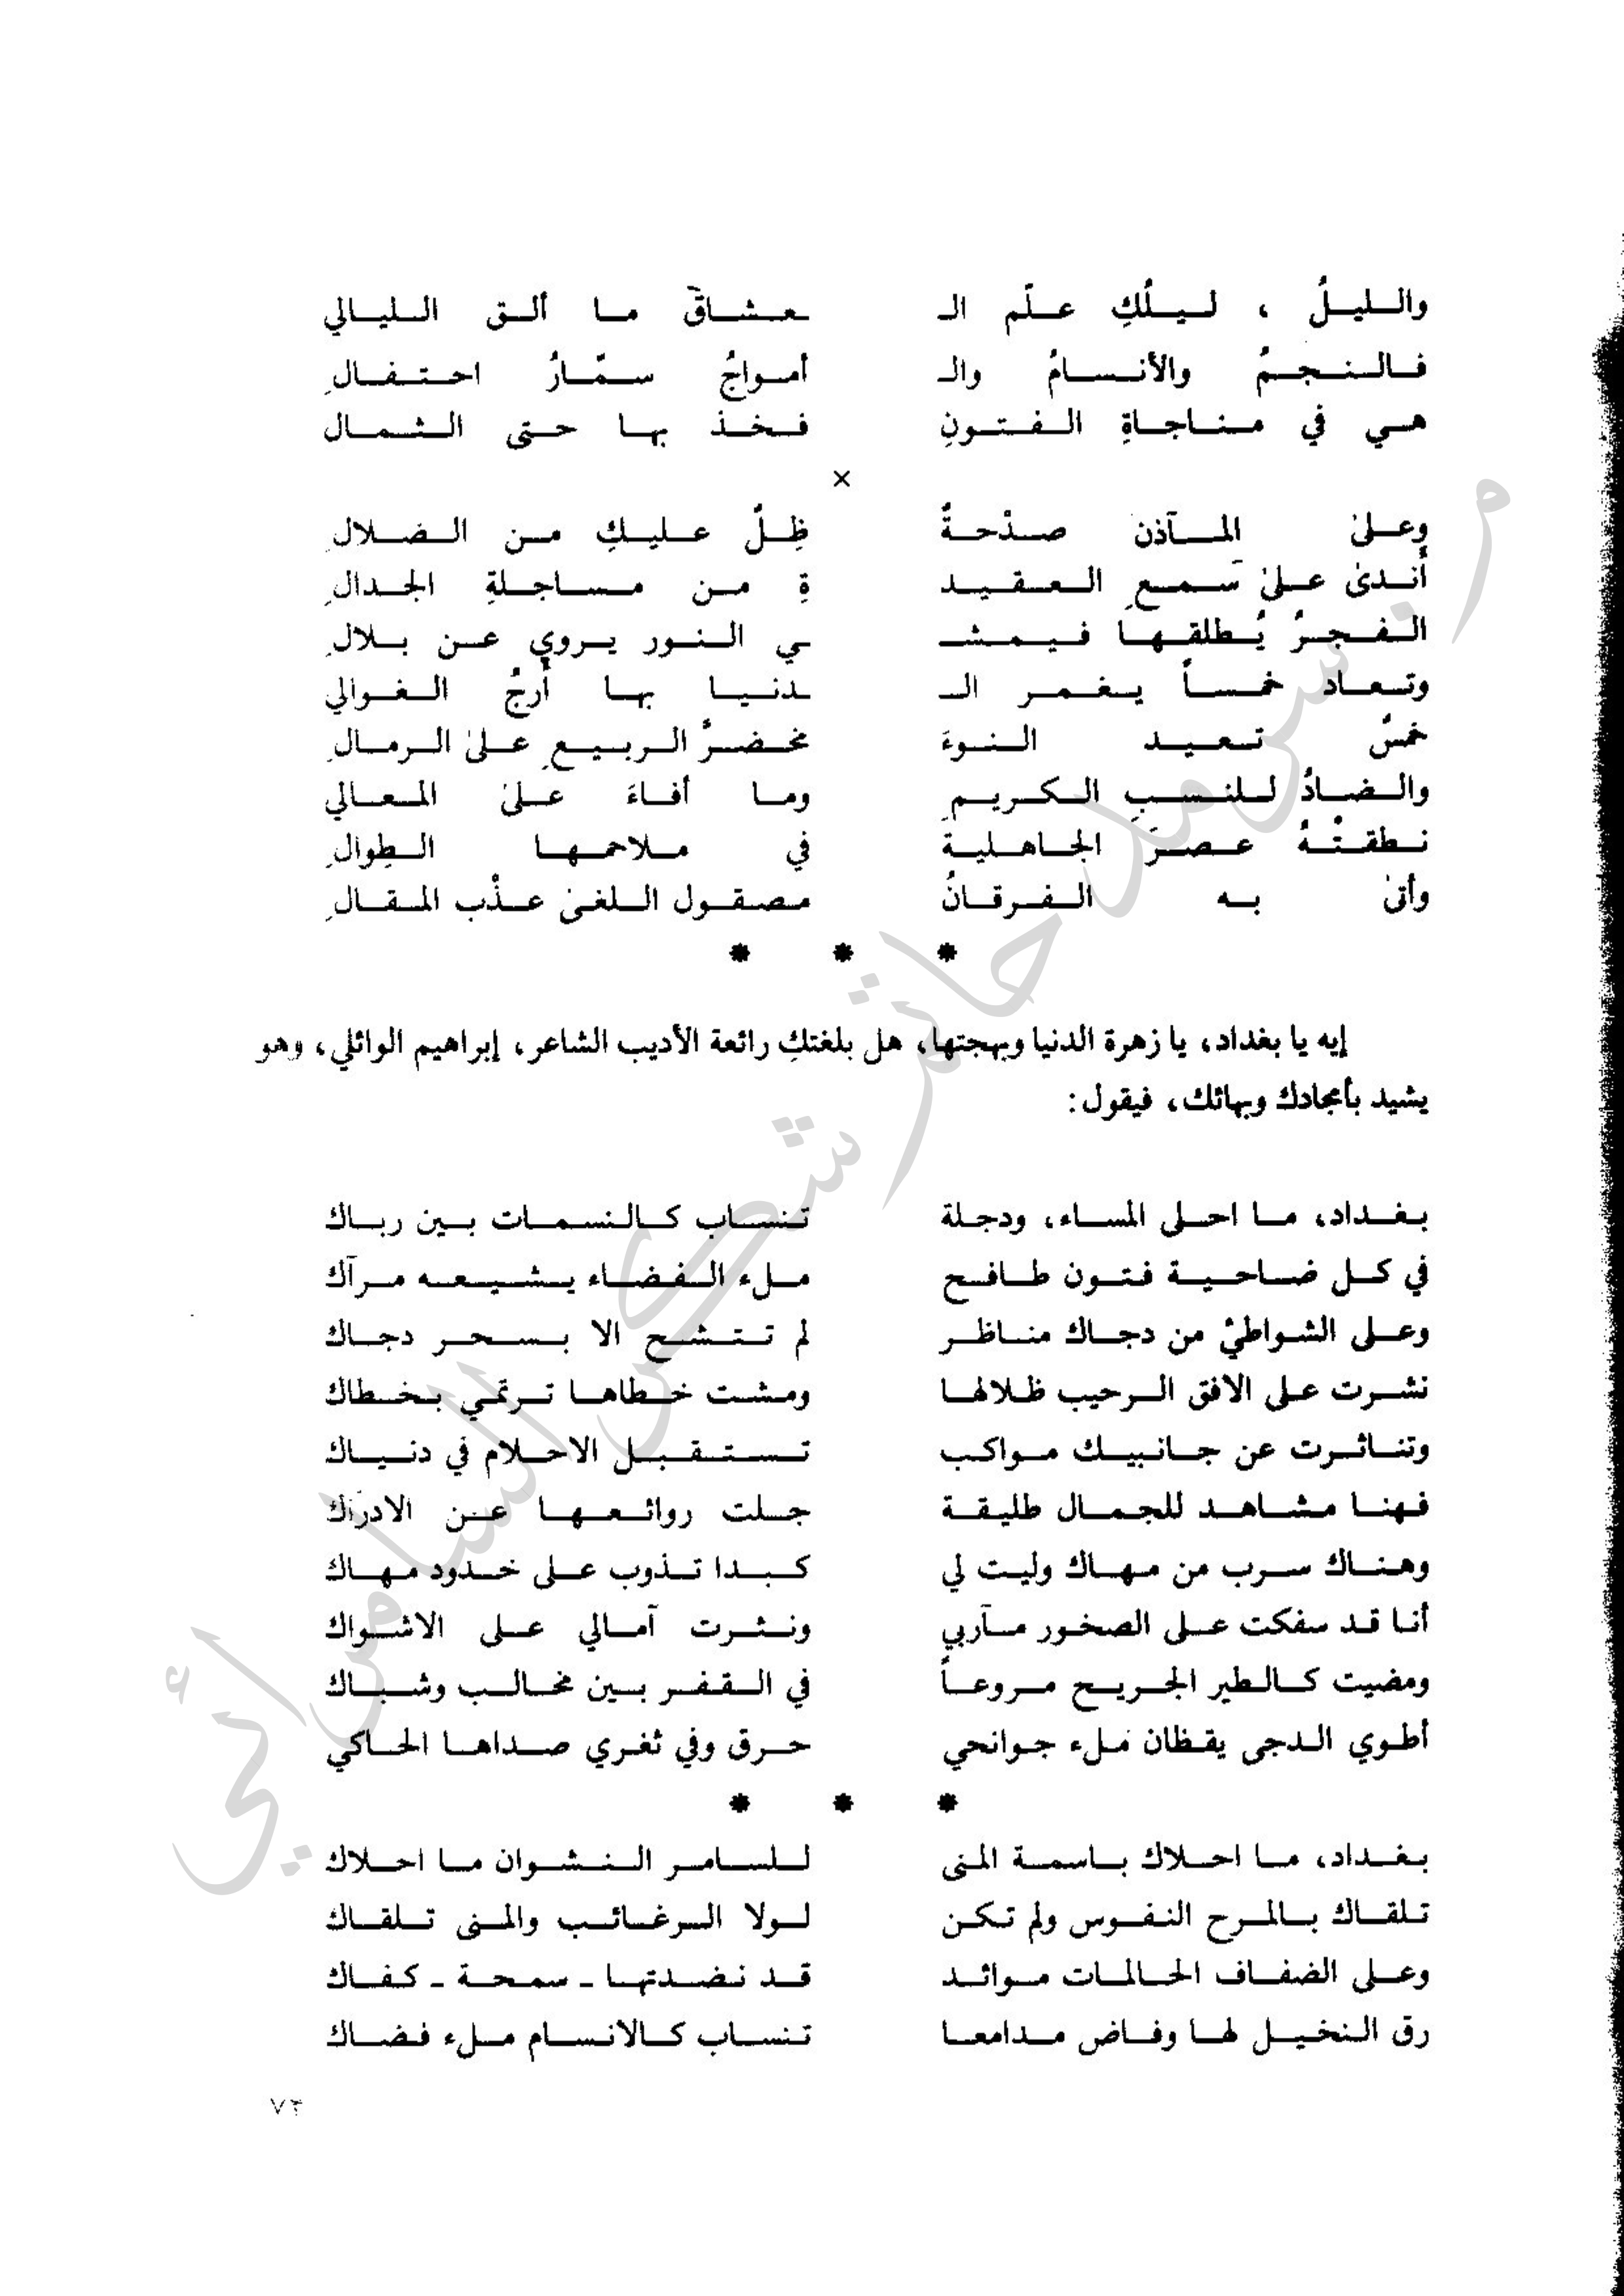 والليلُ ، ليلُكِ علّم الـ ـعشاقَ ما ألق الليالي
فالنجمُ والأنسامُ والـ أمواجُ سمّارُ احتفالِ
هي في مناجاةِ الفتونِ فخذ بها حتى الثمال
×
وعلىٰ المآذن صدْحةٌ ظِلٌ عليكِ من الضلالِ
أندىٰ علىٰ سَمعِ العقيد ةِ من مساجلةِ الجدالِ
الفجرُ يُطلقها فيمشـ ـي النور يروي عن بلالِ
وتعاد خمساً يغمر الـ ـدنيا بها أرجُ الغوالي
خمسٌ تعيد النوءَ مخضرَّ الربيعِ علىٰ الرمالِ
والضادُ للنسبِ الكريمِ وما أفاءَ علىٰ المعالي
نطقتْهُ عصرَ الجاهلية في ملاحمها الطِوالِ
وأتىٰ به الفرقانُ مصقول اللغىٰ عذْب المقالِ
* * *
إيه يا بغداد، يا زهرة الدنيا وبهجتها، هل بلغتكِ رائعة الأديب الشاعر، إبراهيم الوائلي، وهو
يشيد بأمجادك وبهائك، فيقول:
بغداد، ما احلى المساء، ودجلة تنساب كالنسمات بين رباك
في كل ضاحية فتون طافح ملء الفضاء يشيعه مرآك
وعلى الشواطئ من دجاك مناظر لم تتشح الا بسحر دجاك
نشرت على الافق الرحيب ظلالها ومشت خطاها ترتمي بخطاك
وتناثرت عن جانبيك مواكب تستقبل الاحلام في دنياك
فهنا مشاهد للجمال طليقة جلت روائعها عن الادراك
وهناك سرب من مهاك وليت لي كبدا تذوب على خدود مهاك
أنا قد سفكت على الصخور مآربي ونثرت آمالي على الاشواك
ومضيت كالطير الجريح مروعاً في القفر بين مخالب وشباك
أطوي الدجى يقظان ملء جوانحي حرق وفي ثغري صداها الحاكي
* * *
بغداد، ما احلاك باسمة المنى للسامر النشوان ما احلاك
تلقاك بالمرح النفوس ولم تكن لولا الرغائب والمنى تلقاك
وعلى الضفاف الحالمات موائد قد نضدتها ـ سمحة ـ كفاك
رق النخيل لها وفاض مدامعا تنساب كالانسام ملء فضاك
٧٣
م. سرمد حاتم شكر السامرائي